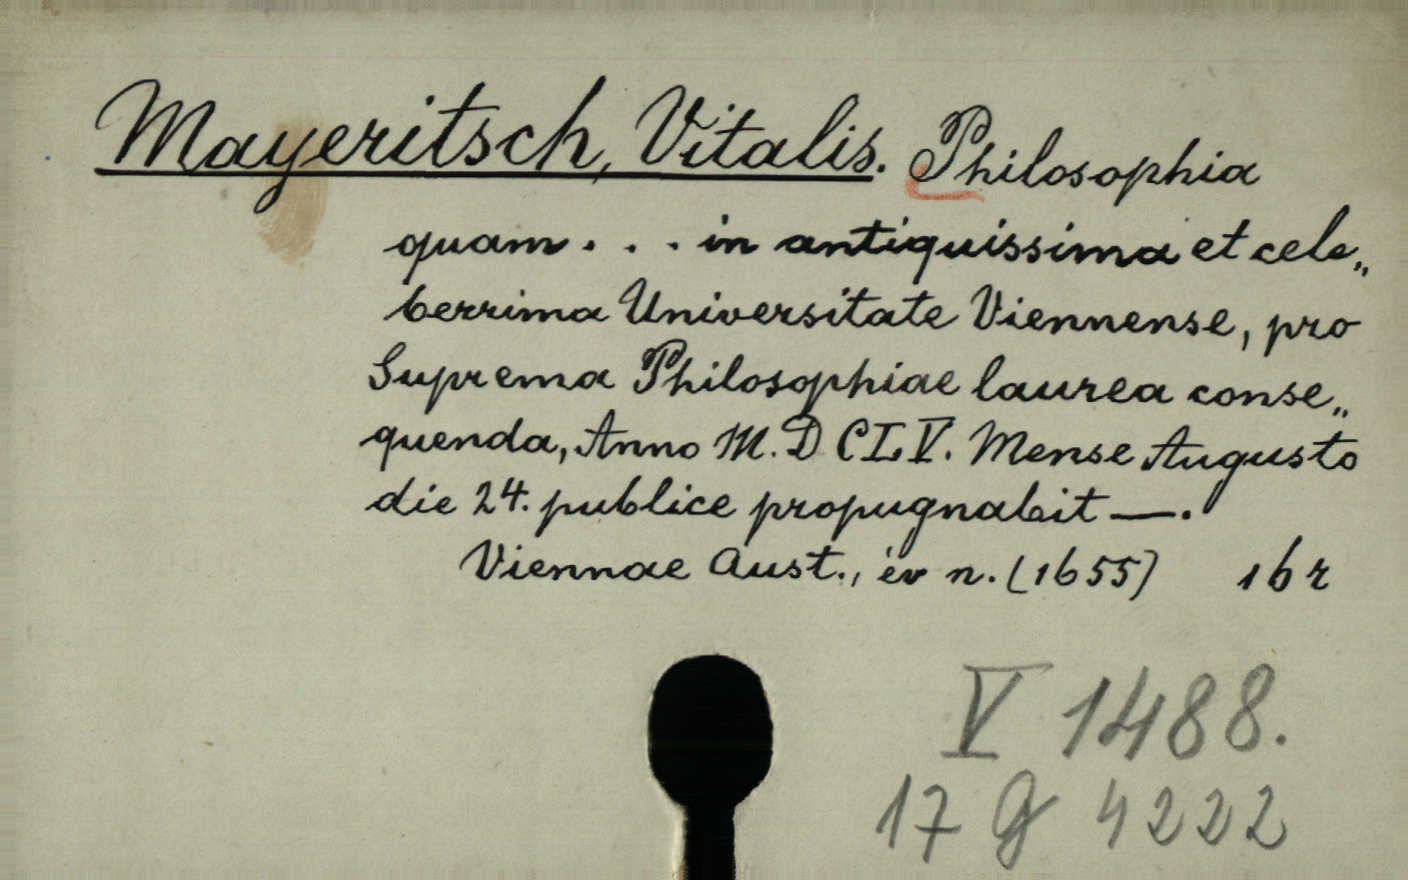 Mayeritsch, Vitalis. Philosophia
quam . . . in antiquissima et cele„
berrima Universitate Viennense, pro
Suprema Philosophiae laurea conse„
quenda, Anno M.DCLV. Mense Augusto
die 24. publice propugnabit —.
Viennae Aust., év n. (1655) 16r
V 1488.
17 g 4222